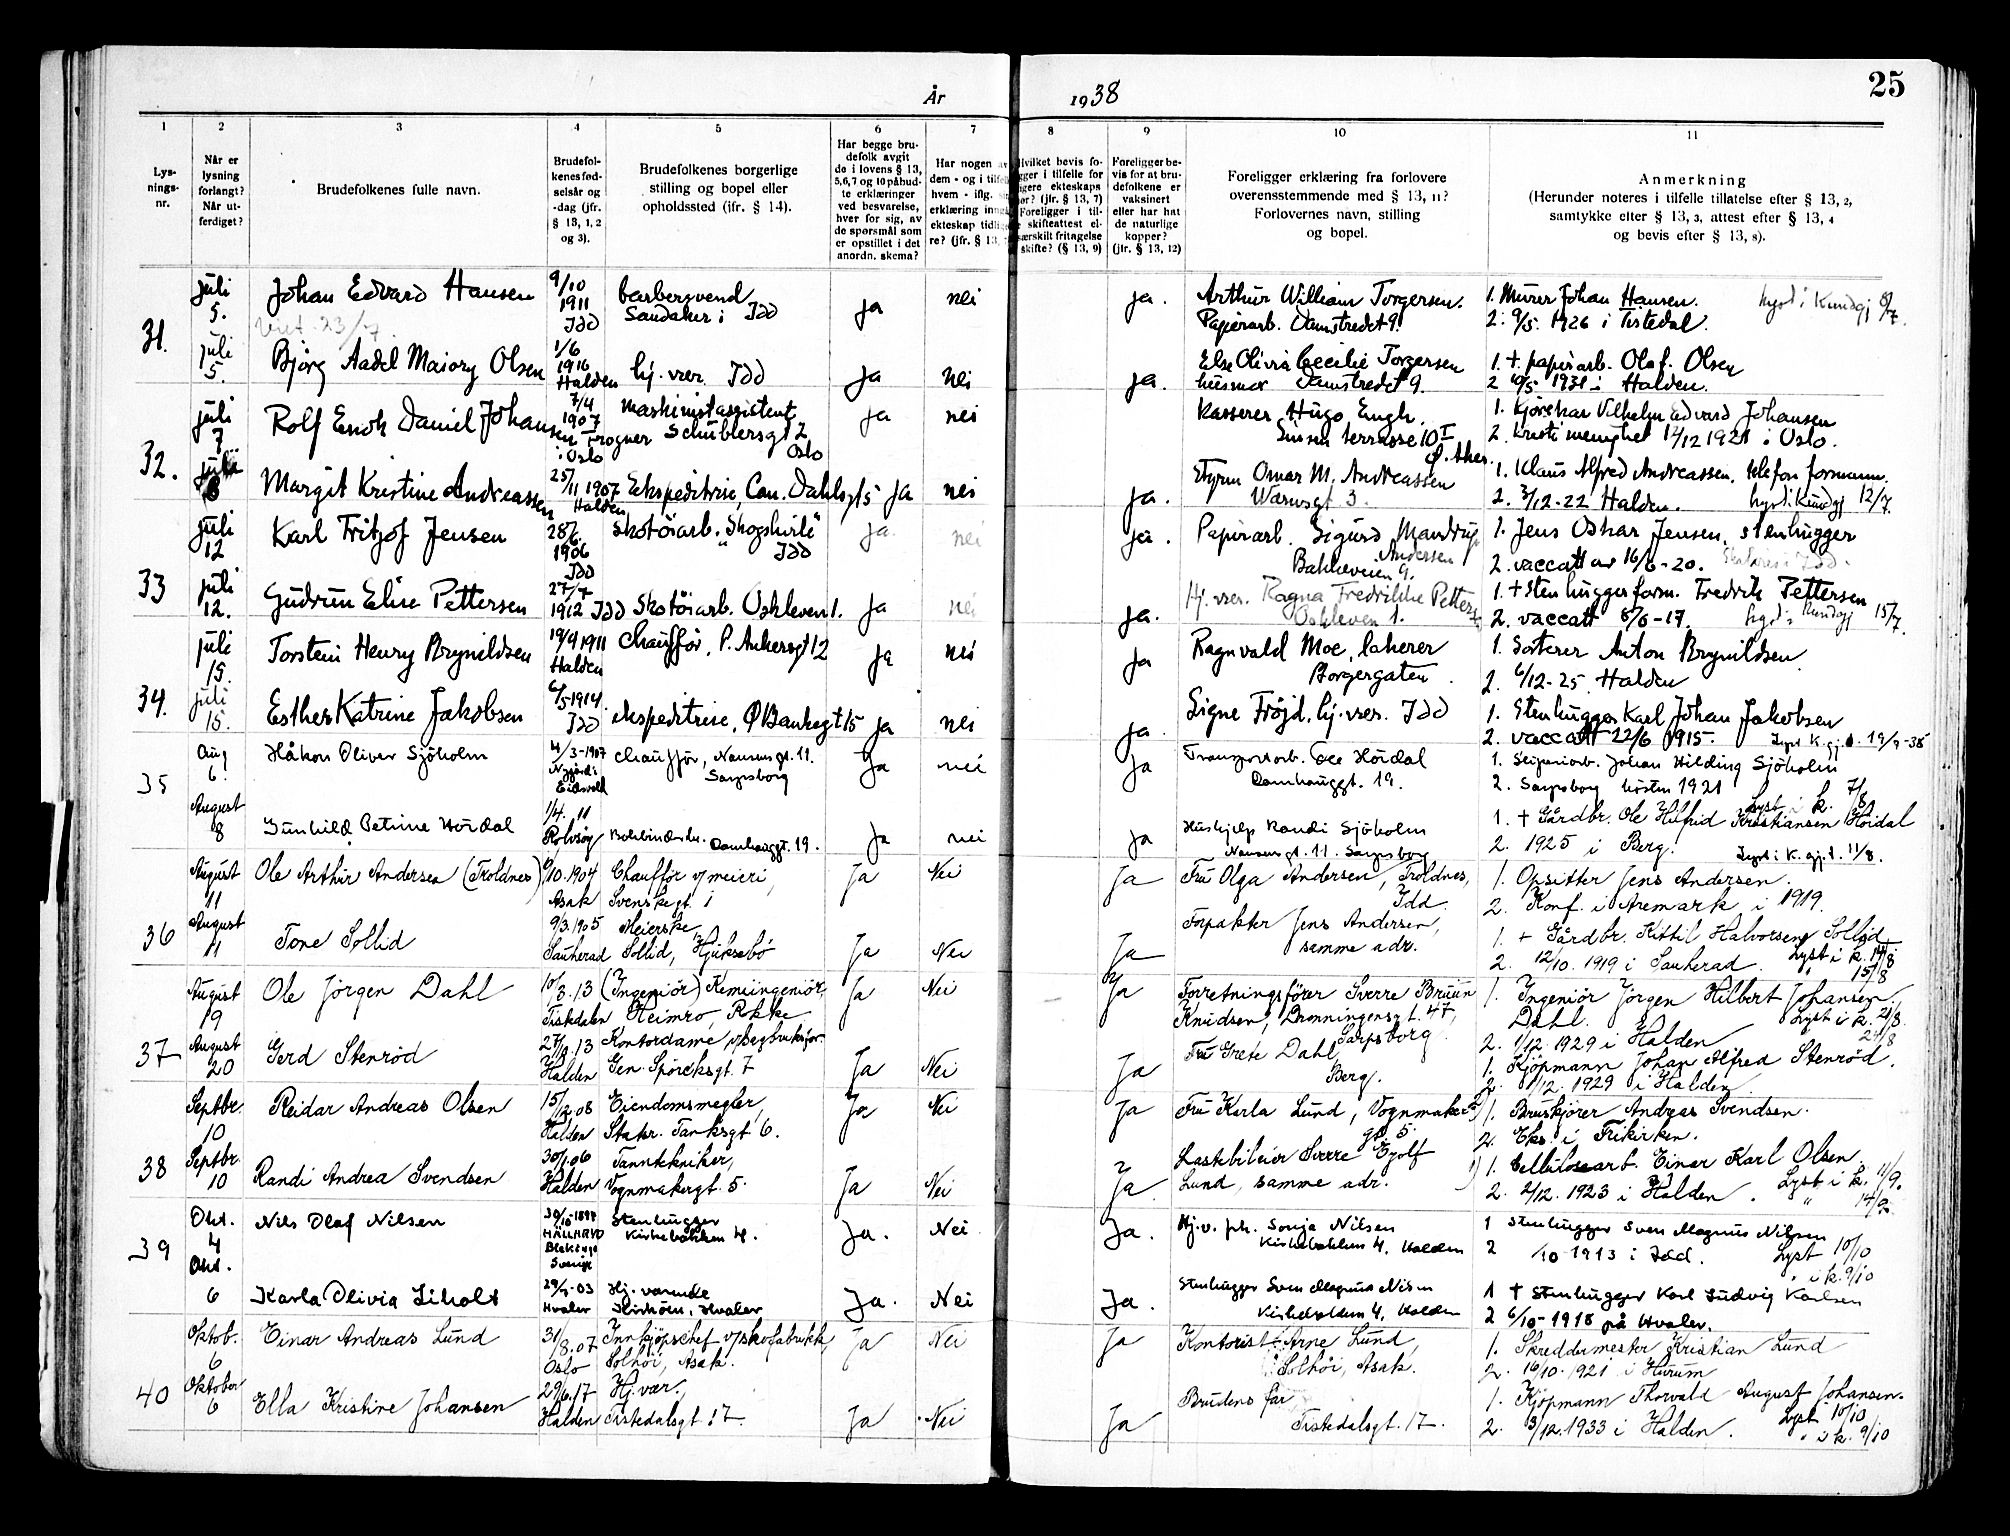 25
År 1938
1 2 3 4 5 6 7 8 9 10 11
Lys-
nings-
nr.
Når er
lysning
forlangt?
Når ut-
ferdiget?
Brudefolkenes fulle navn.
Brudefol-
kenes fød-
selsår og
-dag (jfr.
§ 13, 1, 2
og 3).
Brudefolkenes borgerlige
stilling og bopel eller
opholdssted (jfr. § 14).
Har begge bru-
defolk avgit
de i lovens § 13,
5,6,7 og 10 påbud-
te erklæringer
ved besvarelse,
hver for sig, av
de spørsmål som
er opstillet i det
anordn. skema?
Har nogen av
dem - og i tilfel
hvem - iflg.
erklæring inng
ekteskap tidli
re? (jfr. § 13,
Hvilket bevis fo-
gger i tilfelle for
igere ekteskaps
hør? (jfr. § 13, 7)
Foreligger i til-
e skifteattest el-
særskilt fritagelse
skifte? (§ 13, 9)
Foreligger be-
vis for at bru-
defolkene er
vaksinert
eller har hat
de naturlige
kopper?
(jfr. § 13, 12)
Foreligger erklæring fra forlovere
overensstemmende med § 13, 11?
Forlovernes navn, stilling
og bopel.
Anmerkning
(Herunder noteres i tilfelle tillatelse efter § 13, 2,
samtykke efter § 13, 3, attest efter § 13, 4
og bevis efter § 13, 8).
31.
juli 5. Johan Edvard Hansen 9/10 1911 Idd barbersvend Sandaker i Idd ja nei ja. Arthur William Torgersen. Papirarb. Damstredet 9. 1. Murer Johan Hansen. 2. 9/5. 1926 i Tistedal. lyst i Kundgj 8/7.
Viet 23/7.
juli 5. Bjørg Aadel Maiory Olsen 1/6 1916 Halden hj. vær. Idd ja nei ja. Else Olivia Cecilie Torgersen husmor Damstredet 9. 1. + papirarb. Olaf. Olsen 2 10/5 1931 i Halden.
32.
juli 7 Rolf Erich Daniel Johansen 7/4 1907 Trogner i Oslo Maskinistassistent Schüblersgt 2 Oslo ja nei Kasserer Hugo Engh. Sinsen terrasse 10 I Ø. Aker. 1. Kjørekar Vilhelm Edvard Johansen 2. Kristi menighet 14/12 1921 i Oslo.
juli 8 Margit Kristine Andreassen 25/11 1907 Halden Ekspeditrise, Can. Dahlsgt 5 ja nei ja. Styrm Omar M. Andreassen Wærnsgt 3. 1. Klaus Alfred Andreassen, telefon formann. 2. 3/12-22 Halden. lyst i Kundgj 12/7.
33
juli 12 Karl Fritjof Jensen 28/6. 1906 Idd Skotöiarb. "Skogshvile" Idd ja. nei ja. Papirarb. Sigurd Mandrup Andersen Bakkeveien 9. 1. Jens Oskar Jensen, stenhugger 2. vaccatt av 16/6-20.
juli 12. Gudrun Elise Pettersen 27/7 1912 Idd Skotöiarb. Oskleven 1. ja nei ja. Hj. vær. Ragna Fredrikke Petters Oskleven 1. 1. + Stenhuggerform. Fredrik Pettersen 2. vaccatt 8/6-17. lyst i Kundgj 15/7.
34.
juli 15. Torstein Henry Brynildsen 19/9 1911 Halden Chauffør, P. Ankersgt 12 ja nei ja Ragnvald Moe, lakerer Borgergaten 1. Sorterer Anton Brynildsen 2. 6/12-25 Halden
juli 15. Esther Katrine Jakobsen 6/5-1914. Idd ekspeditrise, Ø Bankegt 15 ja nei ja. Signe Fröjd, hj. vær. Idd 1. Stenhugger Karl Johan Jakobsen 2. vaccatt 22/6 1915. Lyst K. gj. 19/7-38
35
Aug 6. Håkon Oliver Sjöholm 4/3-1907 Eidsvold Chauffør, Nansensgt. 11. Sarpsborg Ja nei Ja Transportarb. Ole Höidal Damhauggt. 19. 1. Sliperiarb. Johan Hilding Sjöholm 2. Sarpsborg hösten 1921 Lyst i k. 7/8
August 8 Gunhild Petrine Hördal 1/4. 11 Rolvsøy Bokbinderske. Damhauggt. 19. Ja nei Ja Hushjelp Randi Sjöholm Nansensgt. 11. Sarpsborg 1. + Gårdbr. Ole Hilfrid Kristiansen Höidal 2. 1925 i Berg. Lyst i K. gj. t. 11/8.
36
August 11 Ole Arthur Andersen (Troldnes) 6/10.1904 Asak Chaufför v/ meieri, Svenskegt 1 Ja Nei Ja Frü Olga Andersen, Troldnes, Idd. 1. Opsitter Jens Andersen. 2. Konf. i Aremark i 1919.
August 11 Tone Sollid 9/3.1905 Sauherad Meierske, Sollid, Hjuksebö Ja Nei Ja Forpakter Jens Andersen, samme adr. 1. + Gårdbr. Kittil Halvorsen Sollid 2. 12/10. 1919 i Sauherad. Lyst i k. 14/8 " 15/8
37
August 19 Ole Jörgen Dahl 10/3.13 Tistedalen (Ingeniör) Kemiingeniör, Heimro, Rokke Ja Nei Ja Forretningsförer Sverre Brüun Knudsen, Dronningensgt. 47, Sarpsborg. 1. Ingeniör Jörgen Hilbert Johansen Dahl. Lyst i k. 21/8. 2. 1/12 1929 i Halden
August 20 Gerd Stenröd 27/10.13 Halden Kontordame Gen. Spörcksgt. 7 Ja Nei Ja Frü Grete Dahl, Berg. 1. Kjöpmann Johan Alfred Stenröd. 2. 1/12. 1929 i Halden
38
Septbr. 10 Reidar Andreas Olsen 15/12.08 Halden Eiendomsmegler, Statsr. Tanksgt 6. Ja Nei Ja Frü Karla Lund, Vognmaker gt. 5. 1. Bruskjörer Andreas Svendsen. 2. Eks. i Frikirken.
Septbr. 10 Randi Andrea Svendsen 30/1.06 Halden Tanntekniker, Vognmakergt. 5. Ja Nei Ja Lastebileier Sverre Eyolf Lund, samme adr. 1. Cellulosearb. Einar Karl Olsen. 2. 2/12. 1923 i Halden. Lyst i k. 11/9. " 14/9.
39
Okt. 4 Nils Olaf Nilsen 30/10-1897 HÄLLARYD Blekinge Sverige Stenhugger Kirkebakken 4. Ja. Nei Ja. Hj. v. ph. Sonja Nilsen Kirkebakken 4, Halden 1 Stenhugger Sven Magnus Nilsen 2 /10 1913 i Idd. Lyst 10/10 " i k. 9/10
Okt. 6 Karla Olivia Liholt 29/7-03 Hvaler Hj. værende Kirköen, Hvaler Ja. Nei Ja. Stenhugger Sven Magnus Nilsen Kirkebakken 4, Halden 1 + Stenhugger Karl Ludvig Karlsen 2 6/10-1918 på Hvaler.
40
Oktob. 6 Einar Andreas Lund 31/8.07 Oslo Innkjöpschef v/skofabrikk, Solhöi, Asak. Ja Nei Ja Kontorist Arne Lund, Solhöi, Asak. 1. Skreddermester Kristian Lund 2. 16/10. 1921 i Hurum
Oktober 6 Ella Kristine Johansen 29/6.17 Halden Hj. vær., Tistedalsgt. 17. Ja Nei Ja Brudens far Tistedalsgt. 17. 1. Kjöpmann Thorvald August Johansen. 2. 3/12.1933 i Halden. Lyst 10/10 " i k. 9/10